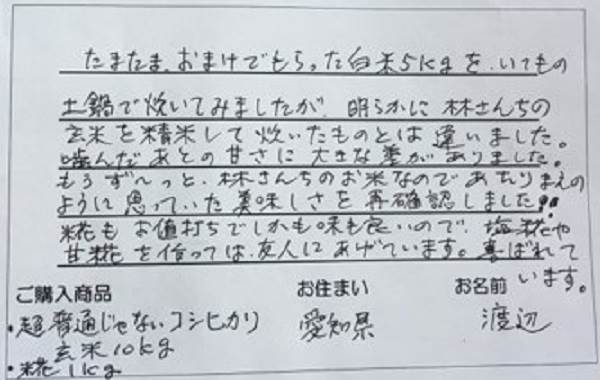 たまたま、おまけでもらった白米5kgを、いつもの
土鍋で炊いてみましたが、明らかに林さんちの
玄米を精米して炊いたものとは違いました。
噛んだあとの甘さに大きな差がありました。
もうず〜っと、林さんちのお米なのであたりまえの
ように思っていた美味しさを再確認しました!!
糀もお値打ちでしかも味も良いので、塩糀や
甘糀を作っては、友人にあげています。喜ばれて
います。
ご購入商品 お住まい お名前
・超普通じゃないコシヒカリ 愛知県 渡辺
玄米10kg
・糀1kg